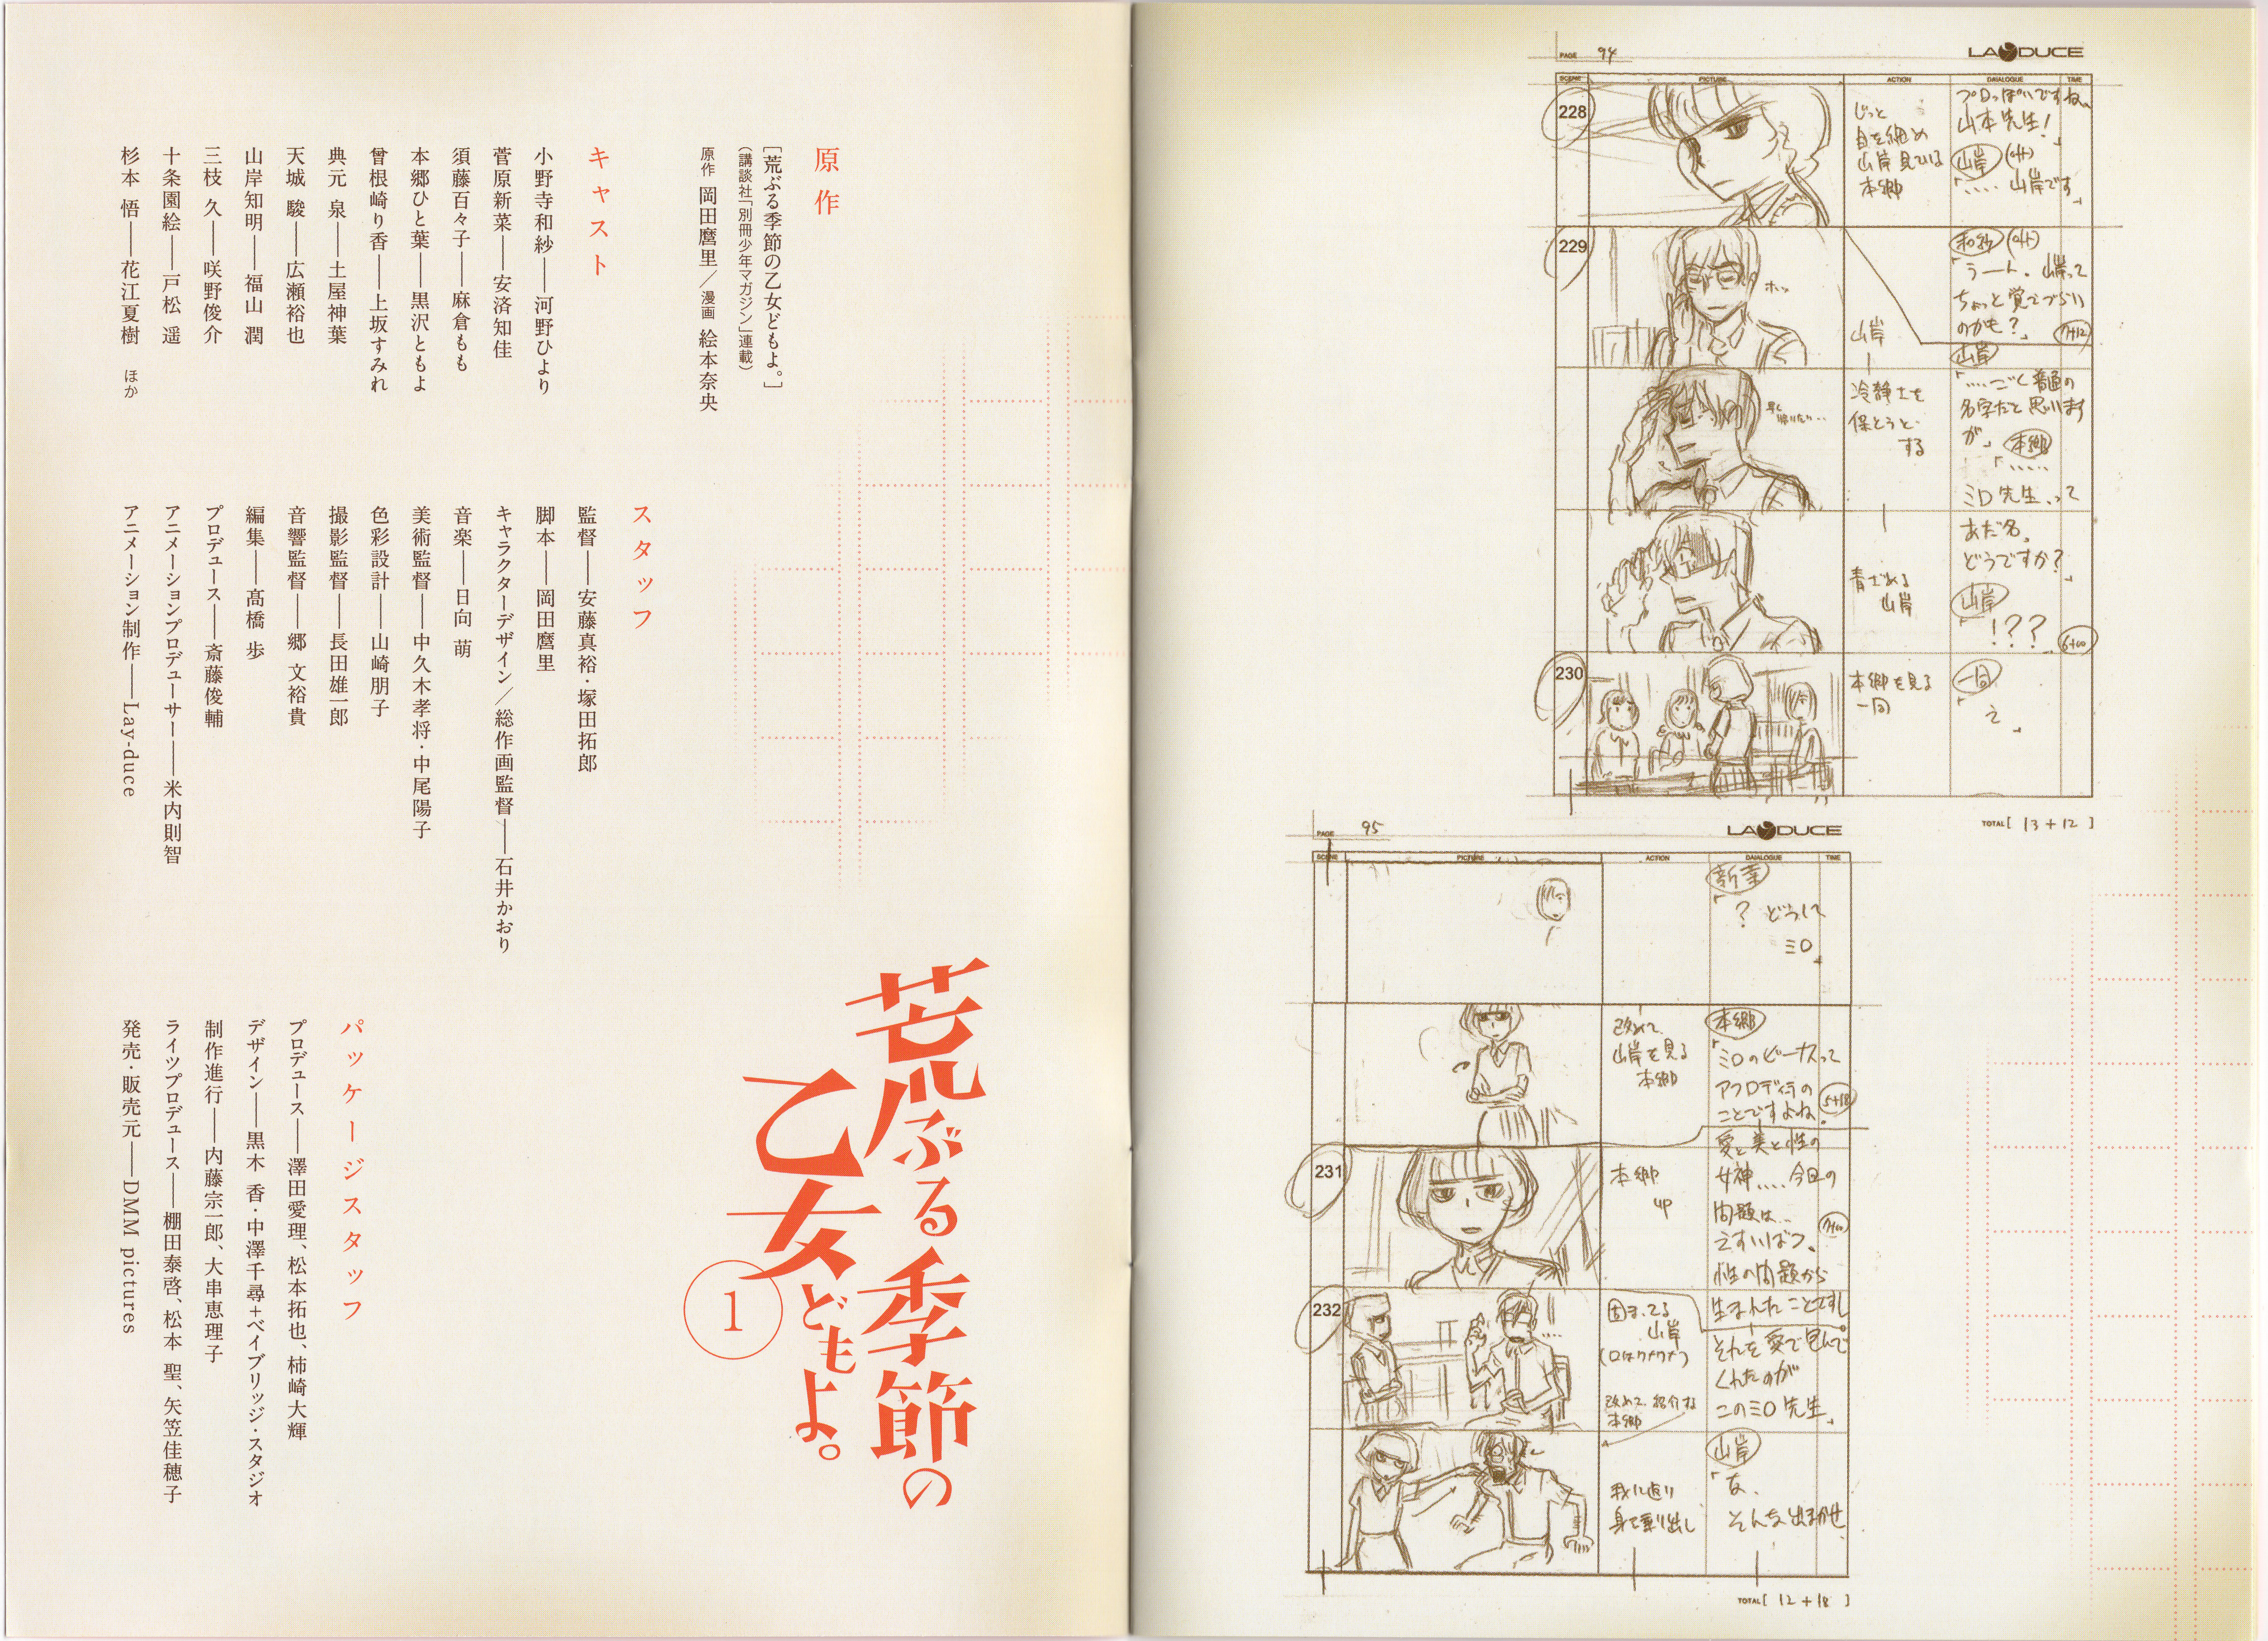 原作
［荒ぶる季節の乙女どもよ。］
（講談社「別冊少年マガジン」連載）
原作 岡田麿里／漫画 絵本奈央
キャスト
小野寺和紗――河野ひより
菅原新菜――安済知佳
須藤百々子――麻倉もも
本郷ひと葉――黒沢ともよ
曾根崎り香――上坂すみれ
典元 泉――土屋神葉
天城 駿――広瀬裕也
山岸知明――福山 潤
三枝 久――咲野俊介
十条園絵――戸松 遥
杉本 悟――花江夏樹 ほか
スタッフ
監督――安藤真裕・塚田拓郎
脚本――岡田麿里
キャラクターデザイン／総作画監督――石井かおり
音楽――日向 萌
美術監督――中久木孝将・中尾陽子
色彩設計――山崎朋子
撮影監督――長田雄一郎
音響監督――郷 文裕貴
編集――髙橋 歩
プロデュース――斎藤俊輔
アニメーションプロデューサー――米内則智
アニメーション制作――Lay-duce
パッケージスタッフ
プロデュース――澤田愛理、松本拓也、柿崎大輝
デザイン――黒木 香・中澤千尋+ベイブリッジ・スタジオ
制作進行――内藤宗一郎、大串恵理子
ライツプロデュース――棚田泰啓、松本 聖、矢笠佳穂子
発売・販売元――DMM pictures
荒ぶる季節の
乙女どもよ。
1
PAGE 94
LAYDUCE
SCENE PICTURE ACTION DAIALOGUE TIME
228
じっと
目を細め
山岸見ている
本郷
プロっぽいですね、
山本先生!」
山岸 (off)
「……山岸です」
229
ホッ
山岸
和紗 (off)
「うーん。山岸って
ちょっと覚えづらい
のかも?」
7+12
早く帰りたい…
冷静さを
保とうと
する
山岸
「……ごく普通の
名字だと思います
が」
本郷
「……
ミロ先生、って
青ざめる
山岸
あだ名。
どうですか?」
山岸
「!???」
6+00
230
本郷を見る
一同
一同
「え」
TOTAL [ 13 + 12 ]
PAGE 95
LAYDUCE
SCENE PICTURE ACTION DAIALOGUE TIME
新菜
「? どうして
ミロ」
改めて
山岸を見る
本郷
本郷
「ミロのビーナスって
アフロディーテの
ことですよね。
5+18
231
本郷
up
愛と美と性の
女神……今回の
問題は…
えすいばつ、
性の問題から
7+00
232
固まってる
山岸
(口はワナワナ)
改めて紹介する
本郷
生まれたことですし
それを愛で包んで
くれたのが
このミロ先生」
我に返り
身を乗り出し
山岸
「な、
そんな出まかせ
TOTAL [ 12 + 18 ]